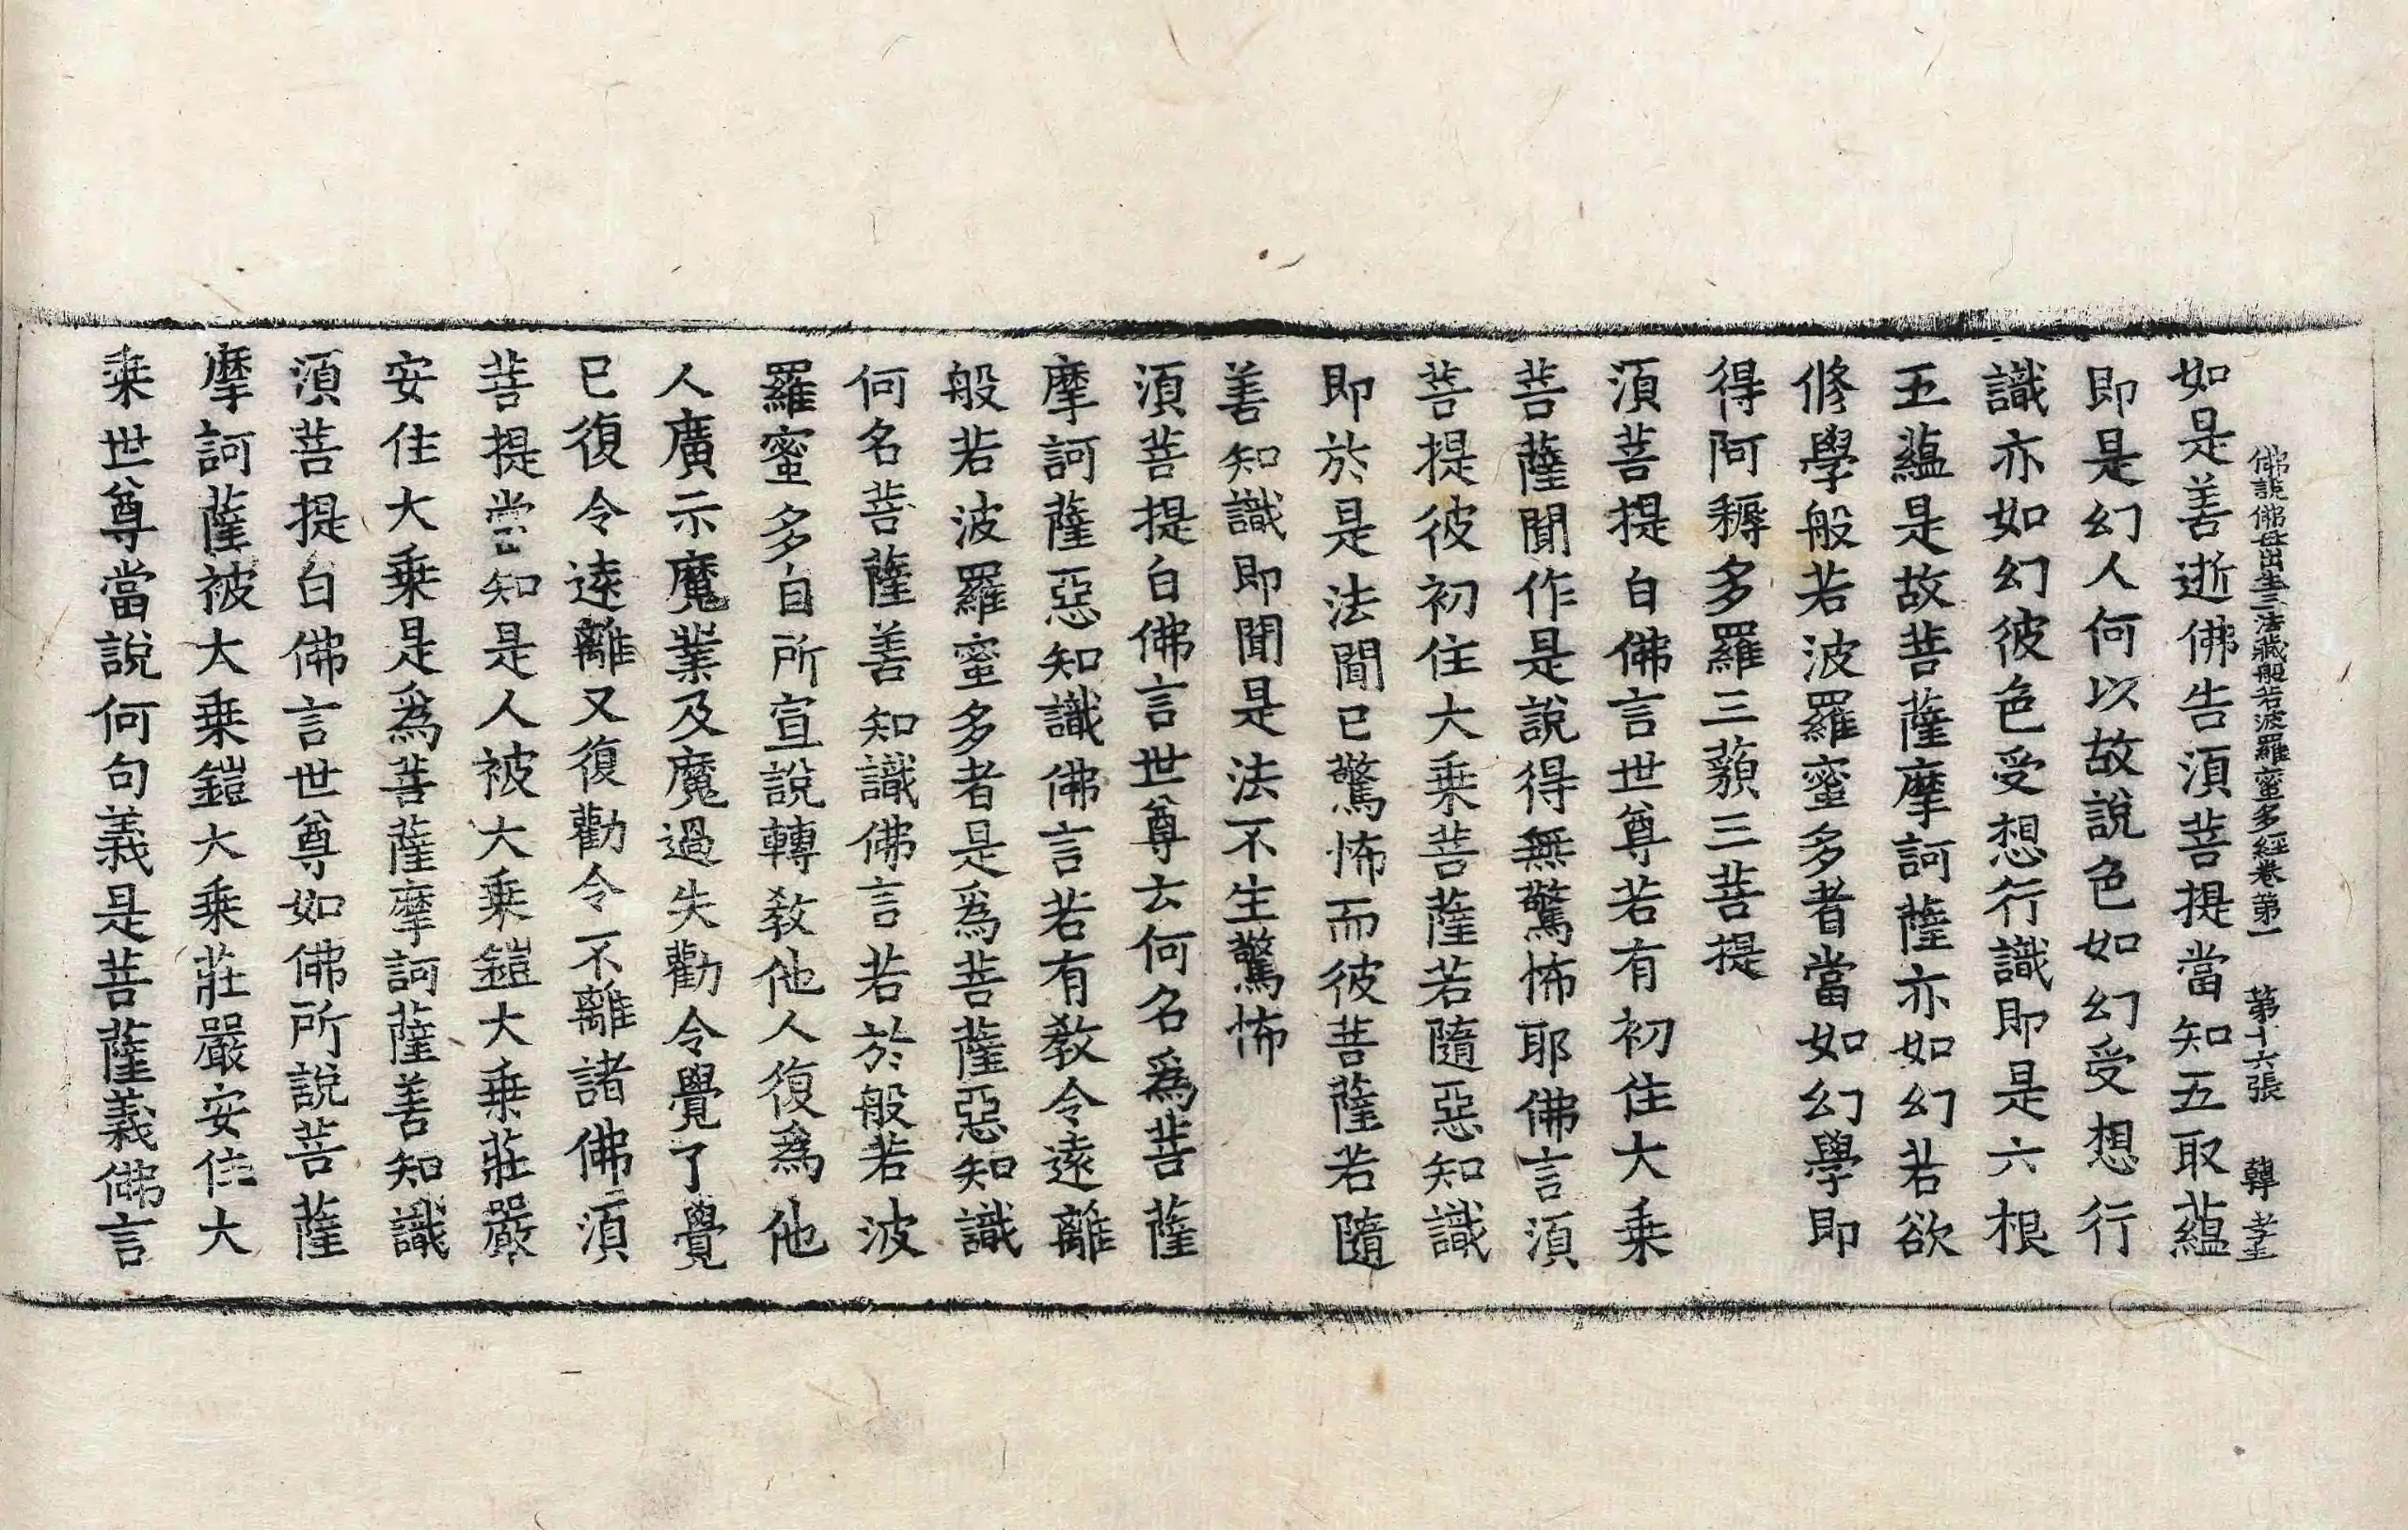 佛説佛母出生三法藏般若波羅蜜多經卷第一 第十六張 韓孝
如是善逝佛告湏菩提當知五取蘊
即是幻人何以故說色如幻受想行
識亦如幻彼色受想行識即是六根
五蘊是故菩薩摩訶薩亦如幻若欲
修學般若波羅蜜多者當如幻學即
得阿耨多羅三藐三菩提
湏菩提白佛言世尊若有初住大乗
菩薩聞作是說得無驚怖耶佛言湏
菩提彼初住大乗菩薩若隨惡知識
即於是法聞已驚怖而彼菩薩若隨
善知識即聞是法不生驚怖
湏菩提白佛言世尊云何名爲菩薩
摩訶薩惡知識佛言若有教令逺離
般若波羅蜜多者是爲菩薩惡知識
何名菩薩善知識佛言若於般若波
羅蜜多自所宣說轉教他人復爲他
人廣示魔業及魔過失勸令覺了覺
已復令逺離又復勸令不離諸佛湏
菩提當知是人被大乗鎧大乗莊嚴
安住大乗是爲菩薩摩訶薩善知識
湏菩提白佛言世尊如佛所說菩薩
摩訶薩被大乗鎧大乗莊嚴安住大
乗世尊當說何句義是菩薩義佛言